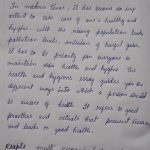 In modern times, it has become so imp
ortant to take care of one's health and
hygiene. with the rising population leads
pollution levels, emission of harmful gases,
it has to be priority for everyone to
maintain their health and hygiene. This
health and hygiene essay guides you the
different ways into which a person should
be aware of health. It refers to good
practices and rituals that prevent diseases
and leads to good health.
People must